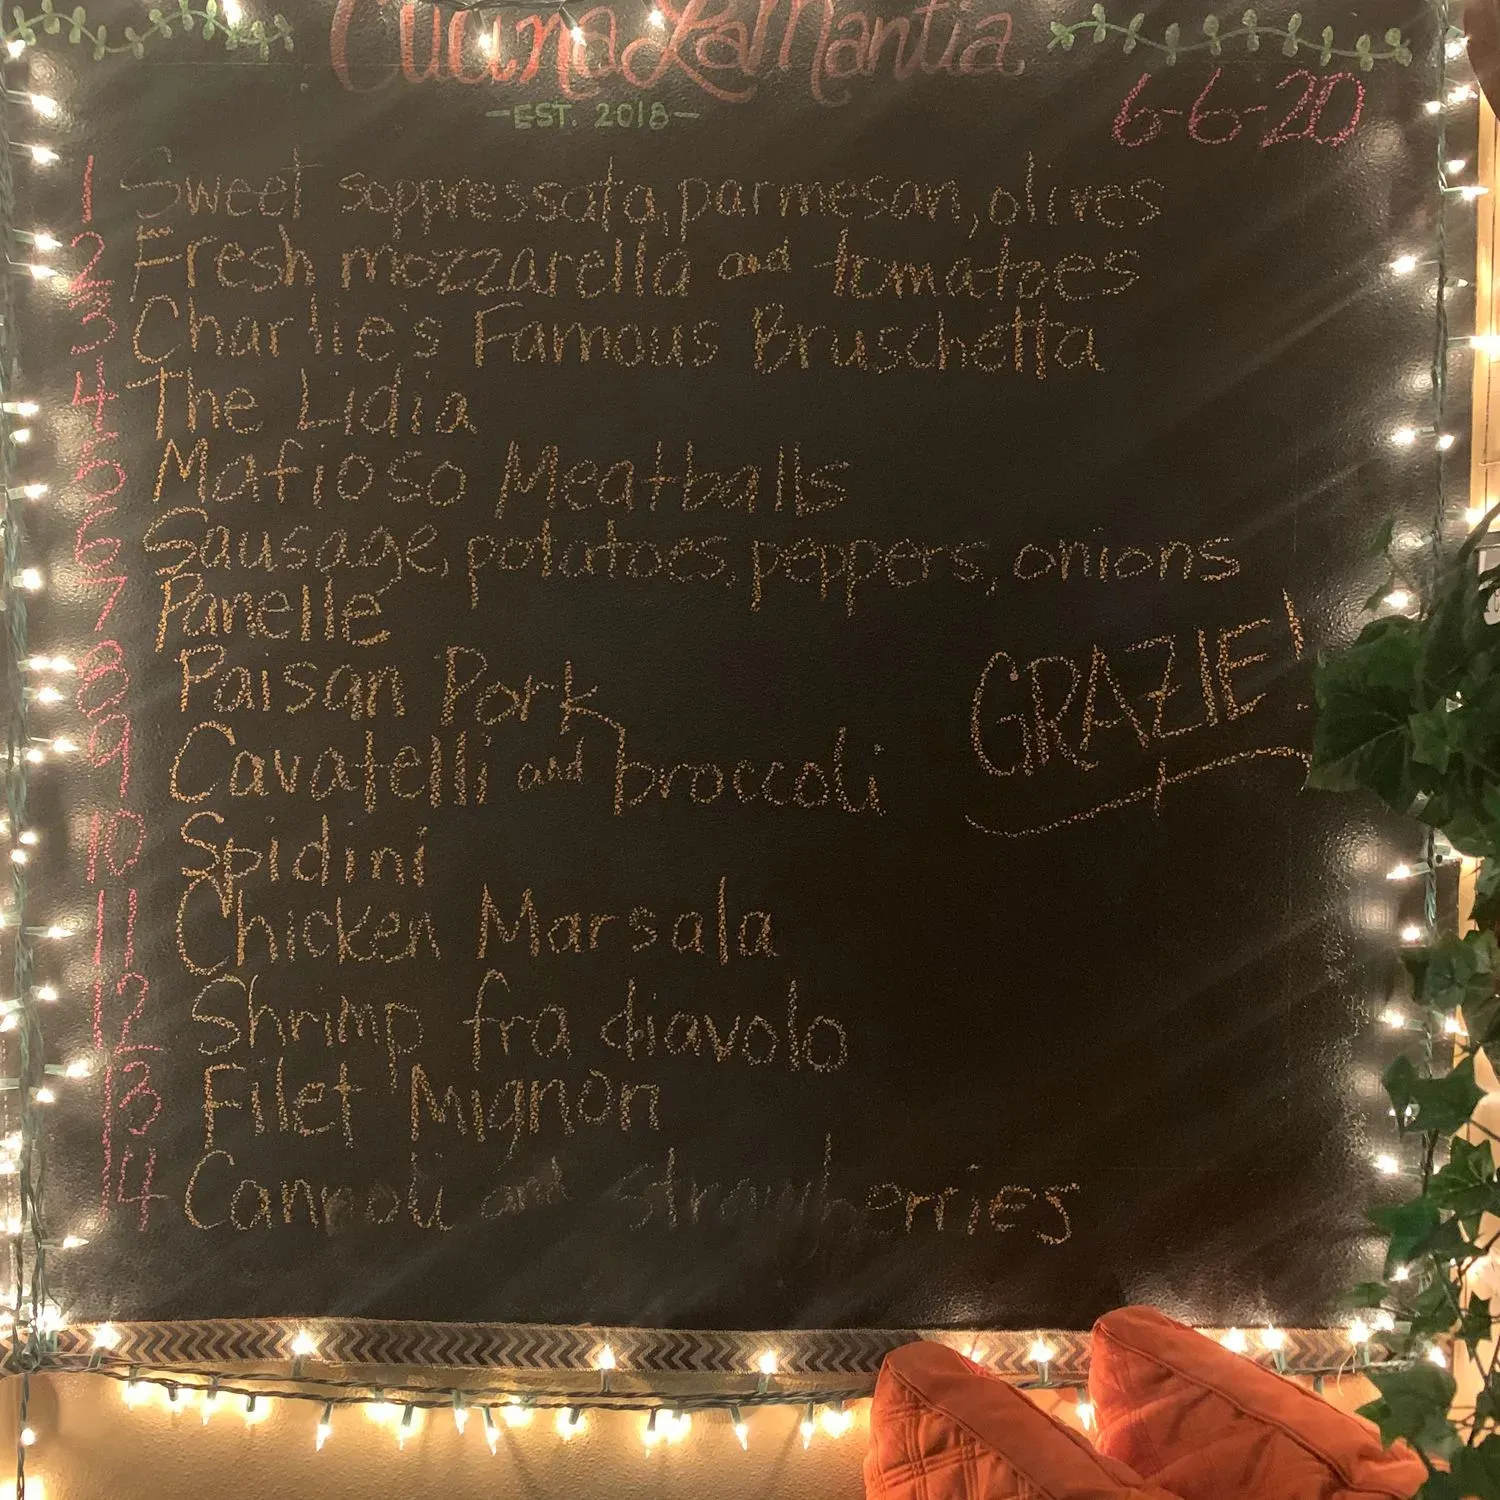 Cucina LaMantia
-EST. 2018-
6-6-20
1 Sweet soppressata, parmesan, olives
2 Fresh mozzarella and tomatoes
3 Charlie's Famous Bruschetta
4 The Lidia
5 Mafioso Meatballs
6 Sausage, potatoes, peppers, onions
7 Panelle
8 Paisan Pork
9 Cavatelli and broccoli
GRAZIE!
10 Spidini
11 Chicken Marsala
12 Shrimp fra diavolo
13 Filet Mignon
14 Cannoli and strawberries